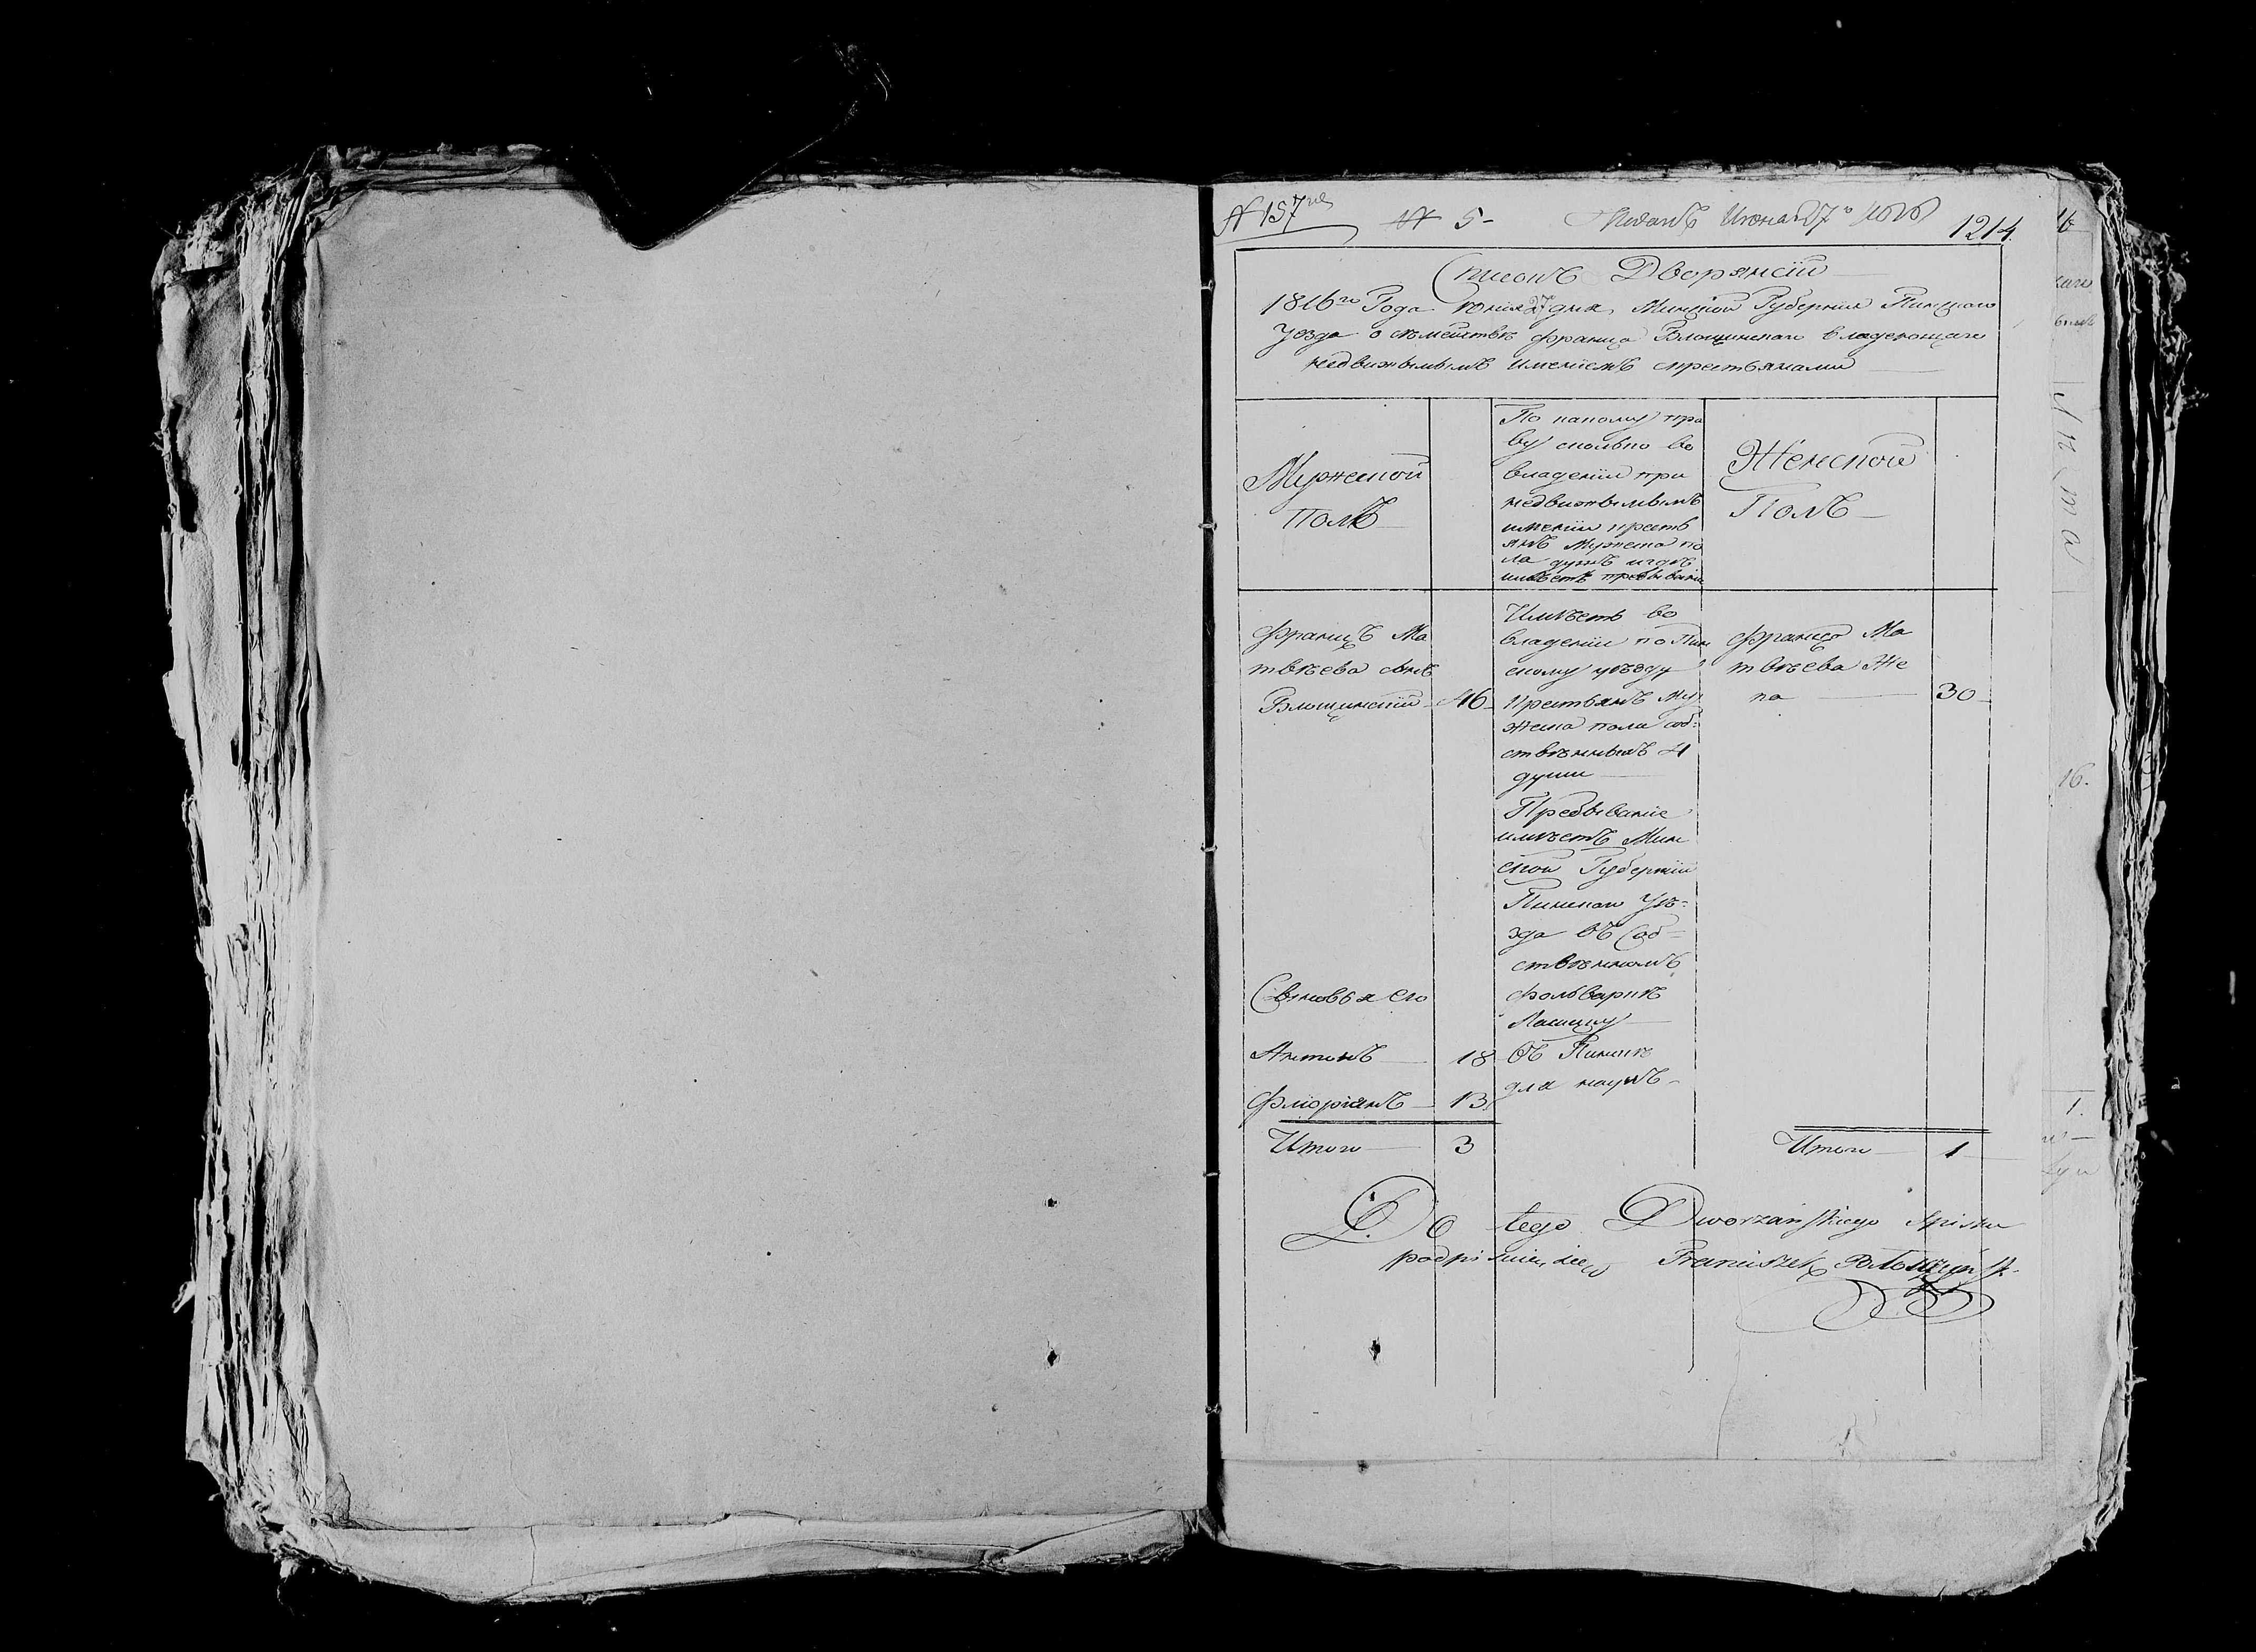 № 157
№ 5-
Поданъ Июня 27º 1816
1214.
Списокъ Дворянскій
1816го Года Юнія 27 дня, Минской Губерніи Пинскаго
Уезда о съмействѣ Франца Влощинскаго владеющаго
недвижымымъ имениемъ скрестьянами
Мужеской
Полъ
По какому пра
ву сколько во
владеніи при
недвижымымъ
имении кресть
янъ Мужеска по
ла душъ игдѣ
имѣетъ пребываніе
Женской
Полъ
Францъ Ма
твѣева сынъ
Влощинскій 46
Имѣеть во
владеніи по Пин
скому уѣзду
крестьянъ Му
жеска пола соб:
ствѣнныхъ 4
души
Пребываніе
имѣетъ Мин
ской Губерніи
Пинскаго Уѣ:
зда въ Соб
ствѣнномъ
фольваркѣ
Франца Ма
твѣева Же
на 30
Сыновья его
Антонъ 18
Въ Пинскѣ
для наукъ
Флоріянъ 13
Итого 3
Итого 1
Do tego Dworzańskiego Spisku
podpisuię się Franciszek
16.
1.